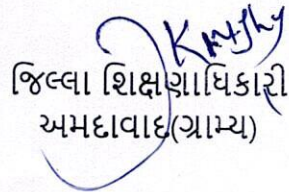 જિલ્લા શિક્ષણાધિકારી
અમદાવાદ(ગ્રામ્ય)